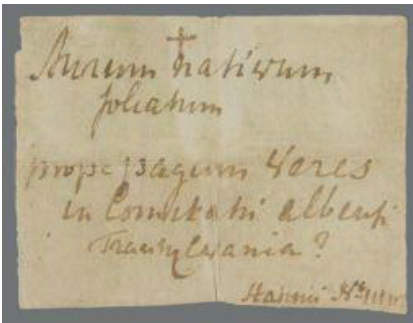 Aurum nativum
foliatum
prope pagum Veres
in Comitatu albensi
Transylvania?